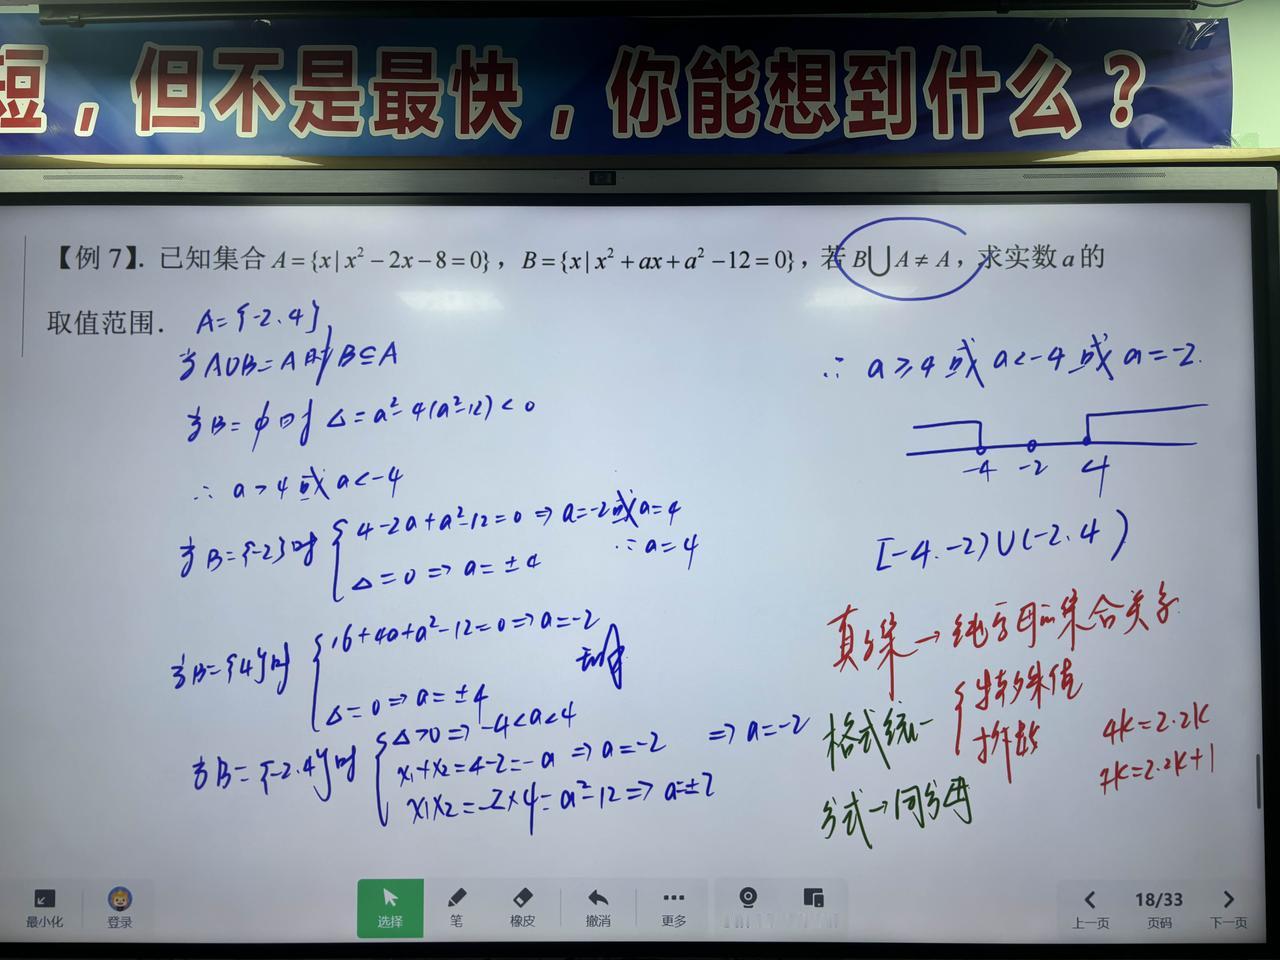 短，但不是最快，你能想到什么？
【例 7】. 已知集合 A={x|x²-2x-8=0}，B={x|x²+ax+a²-12=0}，若 B⋃A≠A，求实数 a 的
取值范围． A={-2.4}
当A∪B=A时,B⊆A
当B=ϕ时 Δ=a²-4(a²-12)<0
∴ a>4或a<-4
当B={-2}时 { 4-2a+a²-12=0 ⇒ a=-2或a=4
Δ=0 ⇒ a=±4 ∴a=4
当B={4}时 { 16+4a+a²-12=0 ⇒ a=-2
Δ=0 ⇒ a=±4
当B={-2.4}时 { Δ>0 ⇒ -4<a<4
x₁+x₂=4-2=-a ⇒ a=-2 ⇒ a=-2
x₁x₂=-2×4=a²-12 ⇒ a=±2
∴ a≥4 或 a<-4 或 a=-2.
-4 -2 4
[-4.-2)∪(-2.4)
真子集→纯字母的集合关系
格式统一 { 特殊值
4k=2·2k
7k=2·2k+1
分式→同分母
最小化
登录
选择
笔
橡皮
撤消
更多
上一页
18/33
页码
下一页